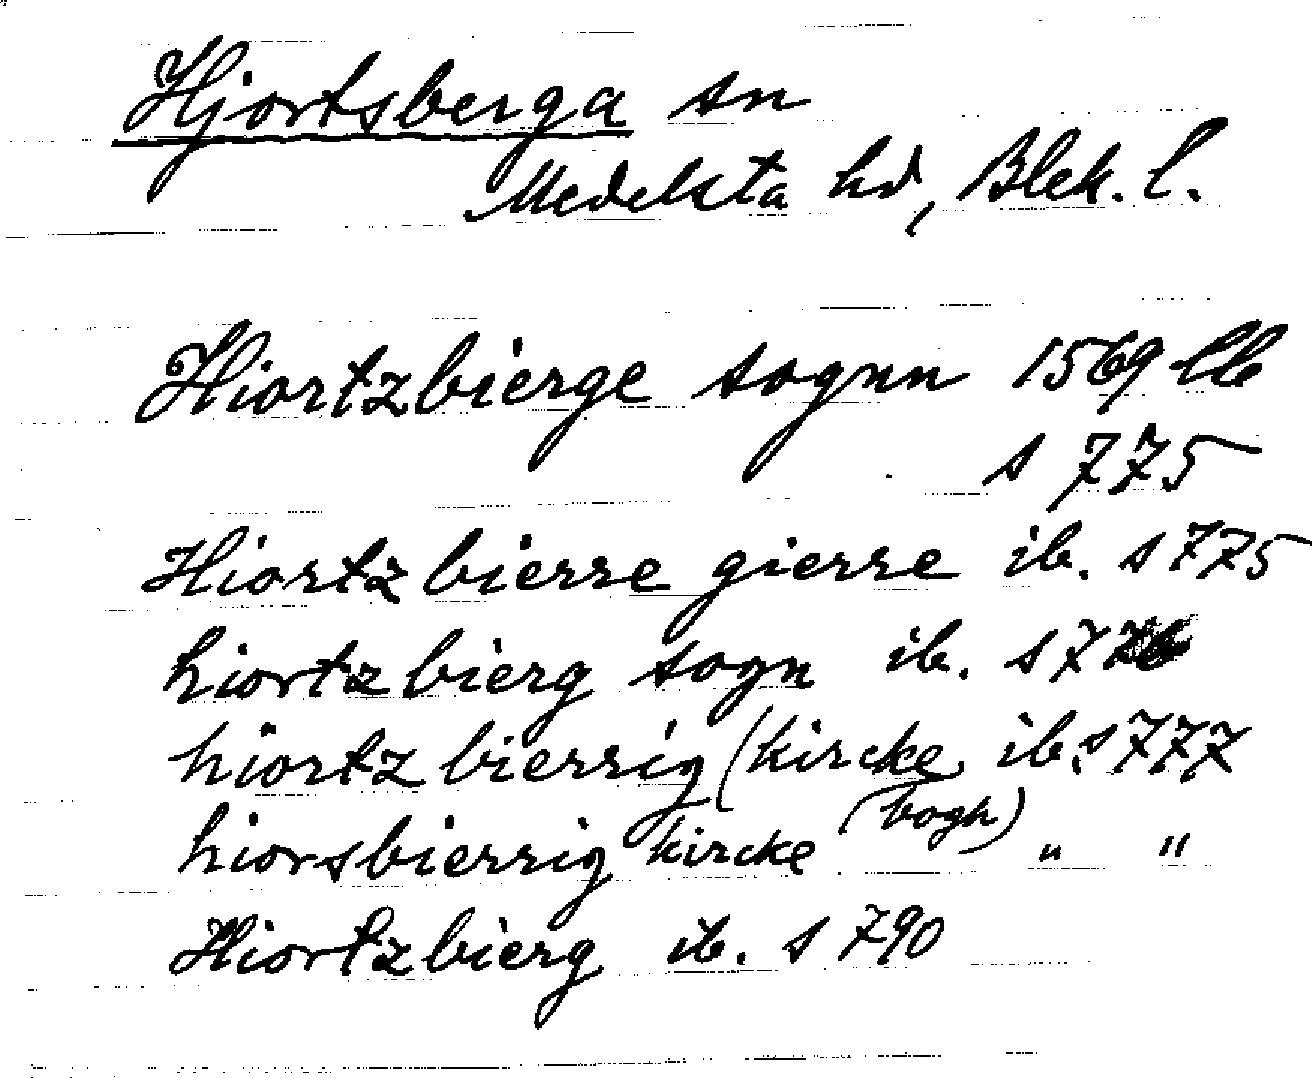 Hjortsberga sn
Medelsta hd, Blek. l.
Hiortzbierge sognn 1569 lb
s 775
Hiortzbierre gierre ib. s 775
hiortzbierg sogn ib. s 776
hiortzbierrig (kircke ib. s 777
bogh)
hiorsbierrig kircke " "
Hiortzbierg ib. s 790